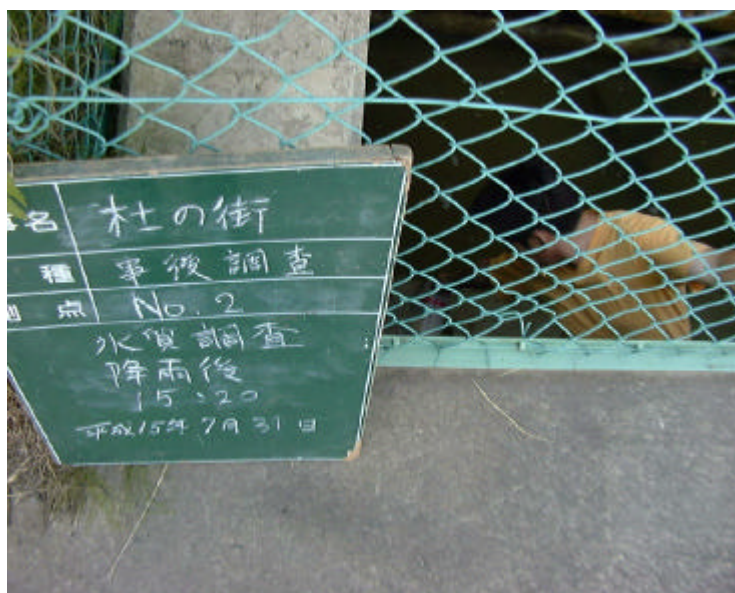 名 杜の街
種 事後調査
点 No.2
水質調査
降雨後
15:20
平成15年7月31日